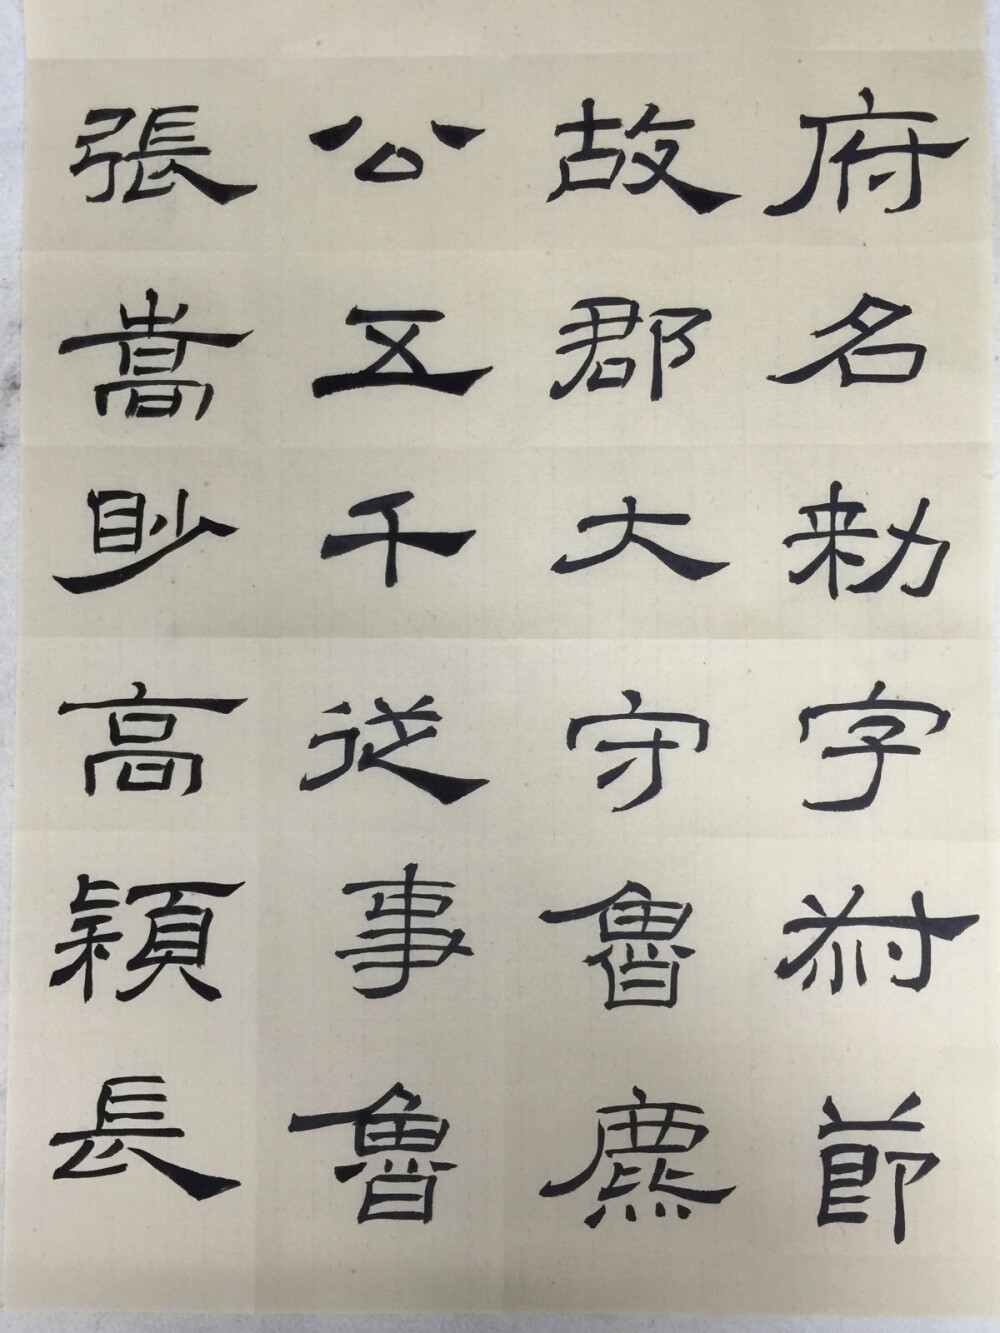 府名勑字叔節
故郡大守魯麃
公五千從事魯
張嵩眇高穎長